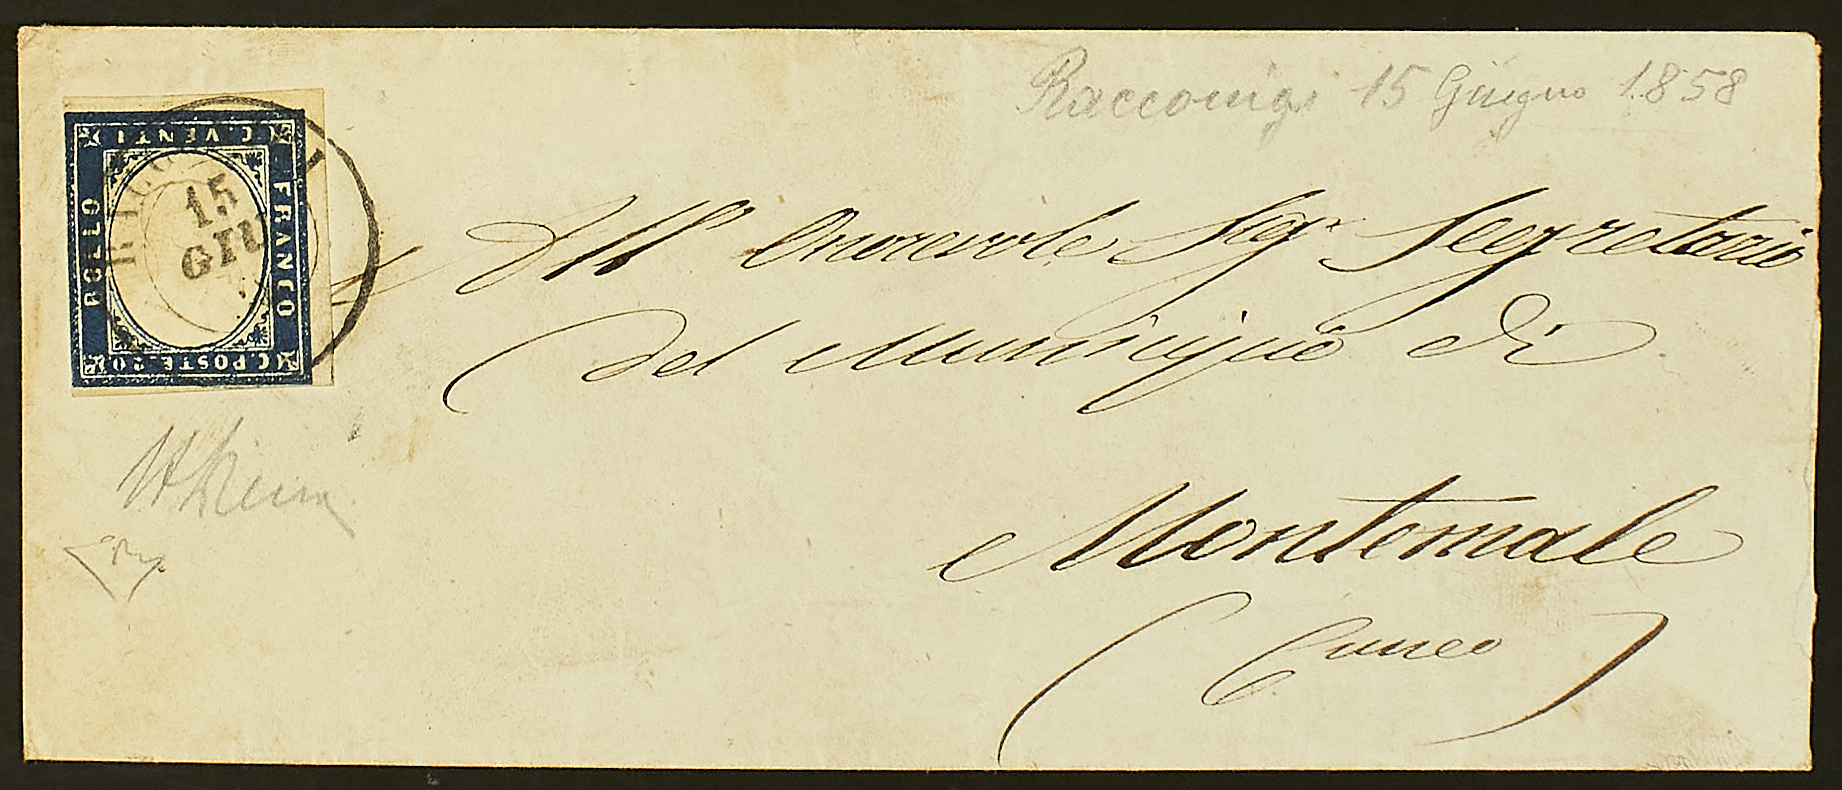 Racconigi 15 Giugno 1858
C. VENTI
FRANCO
BOLLO
C. POSTE 20
15
GIU
All' Onorevole Sigr Segretario
del Municipio di
Montemale
(Cuneo)